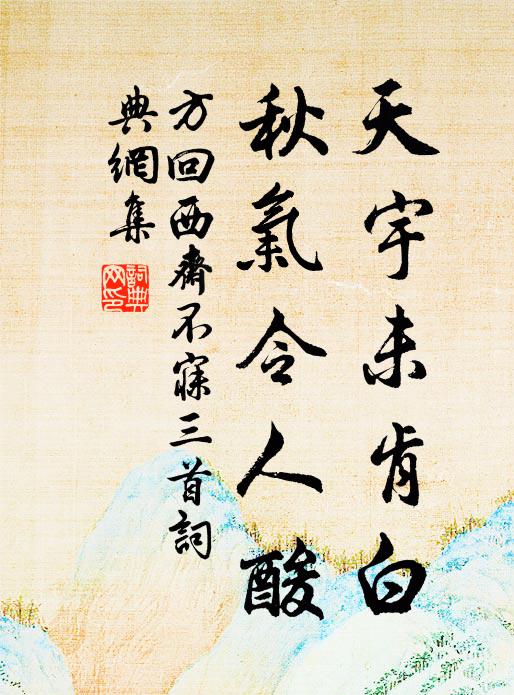 天宇未肯白
秋氣令人酸
方回西齋不寐三首詞
典網集
詞典網印